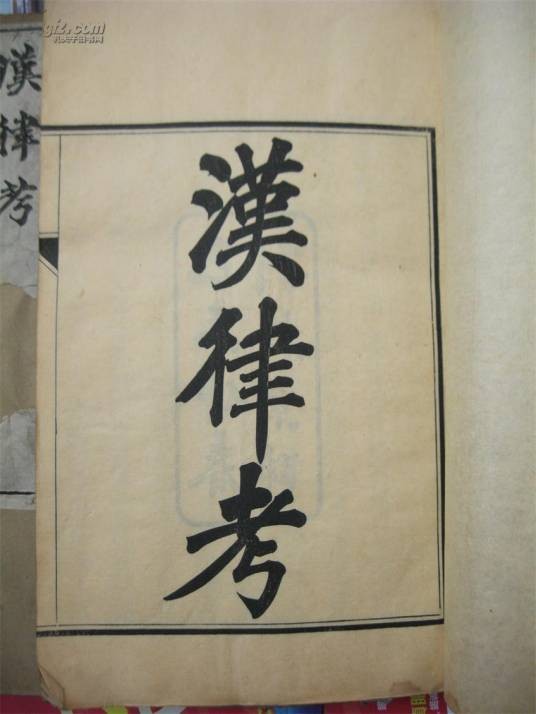 漢律考
漢律考
gfz.com
孔夫子旧书网